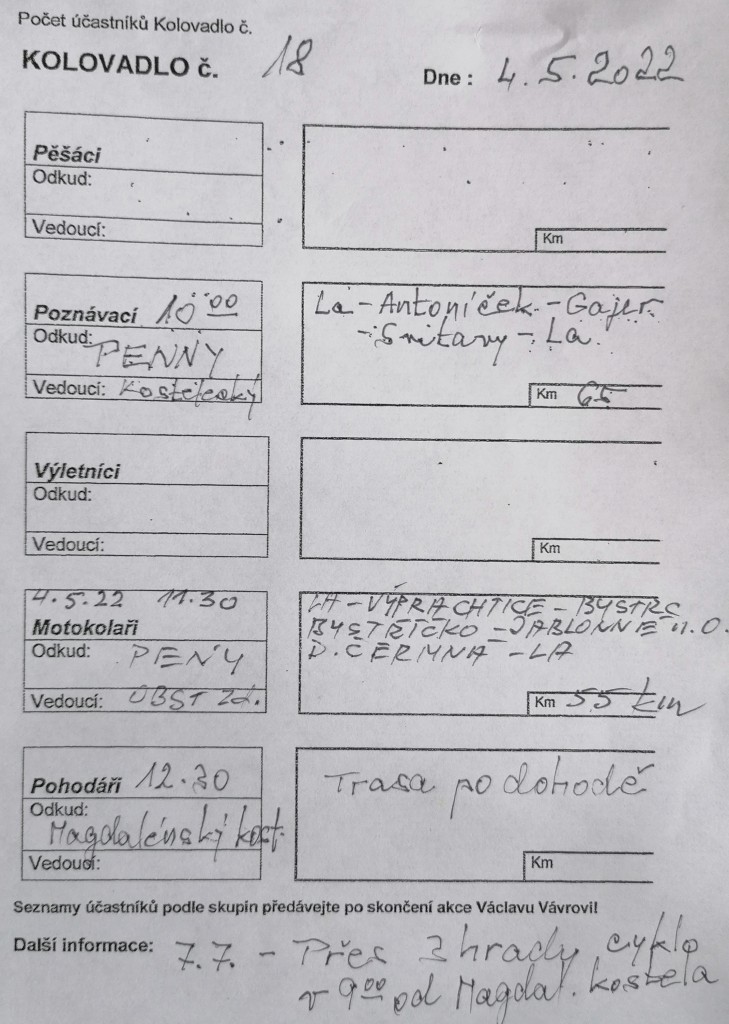 Počet účastníků Kolovadlo č.
KOLOVADLO č. 18 Dne : 4.5.2022
Pěšáci
Odkud:
Vedoucí:
Km
Poznávací 10 00
Odkud: PENNY
Vedoucí: Kostelecký
La - Antoníček - Gajer
- Svitavy - La
Km 65
Výletníci
Odkud:
Vedoucí:
Km
4.5.22 11.30
Motokolaři
Odkud: PENY
Vedoucí: OBST Zd.
LA - VÝPRACHTICE - BYSTRC
BYSTŘÍČKO - JABLONNÉ N.O.
D. ČERMNÁ - LA
Km 55 km
Pohodáři 12.30
Odkud:
Magdalénský kost.
Vedoucí:
Trasa po dohodě
Km
Seznamy účastníků podle skupin předávejte po skončení akce Václavu Vávrovi!
Další informace: 7.7. - Přes 3 hrady cyklo
v 9 00 od Magdal. kostela